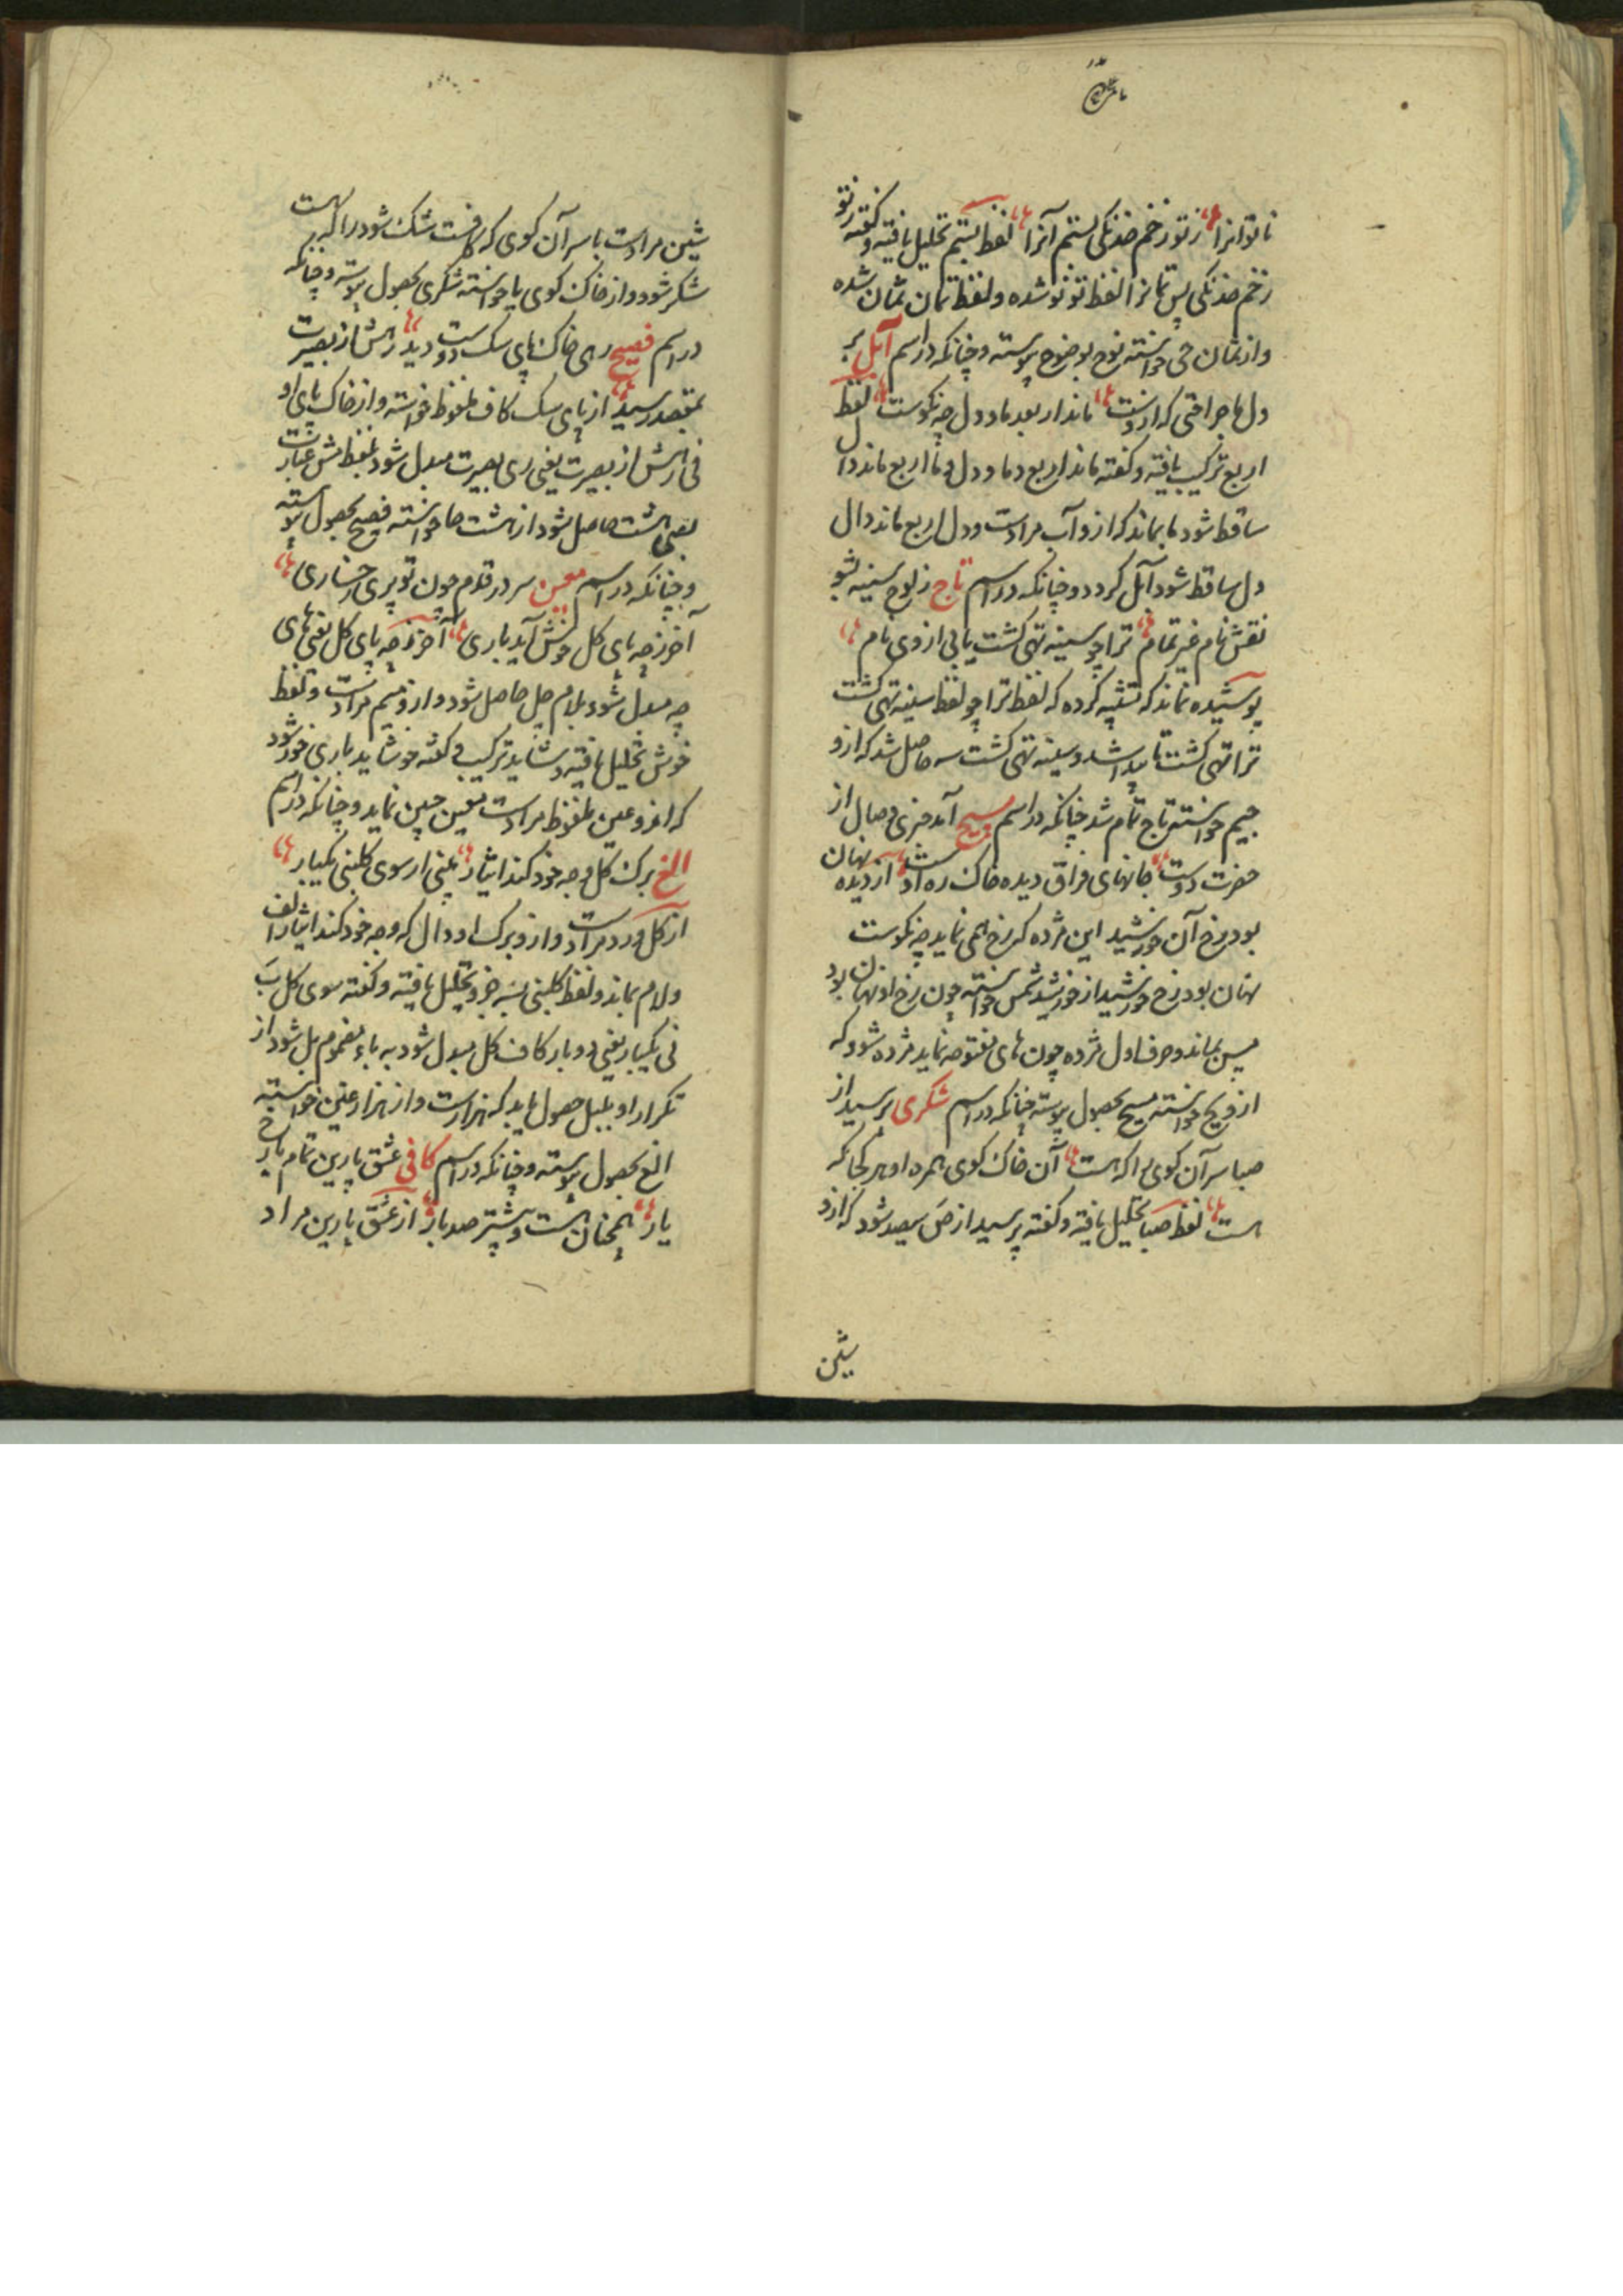 ناتوانرا ز تو زخم خدنکی بستم آنرا لفظ بستم تحلیل یافته و کفته ز تو
زخم خدنکی پس تمانرا لفظ تو نو شده و لفظ تمان ثمان شده
و از ثمان حی خواسته نوح بوضوح پیوسته و چنانکه در اسم آبل بر
دل ما جراحتی که از دوست ماند ار بعد ما و دل چه نکوست لفظ
اربع ترکیب یافته و کفته ماند اربع دما و دل و ما اربع ماند دال
ساقط شود ما بماند که ازو آب مرادست و دل اربع ماند دال
دل ساقط شود آبل کردد و چنانکه در اسم تاج ز لوح سینه بشو
نقش نام غیر تمام ترا چو سینه تهی کشت یابی از وی نام
پوشیده نماند که تشبیه کرده که لفظ ترا چو لفظ سینه تهی کشت
ترا تهی کشت تا پیدا شد و سینه تهی کشت سه حاصل شد که ازو
جیم خواسته تاج تمام شد چنانکه در اسم مسیح آمد خبری وصال از
حضرت دوست جانهای فراق دیده خاک ره اوست از دیده نهان
بود رخ آن خورشید این مژده که رخ همی نماید چه نکوست
نهان بود رخ خورشید از خورشید شمس خواسته چون رخ او نهان بود
مسین بماند و حرف اول مژده چون های مفتوحه نماید مژده شود که
ازو یح خواسته مسیح بحصول پیوسته چنانکه در اسم شکری پرسید از
صبا سر آن کوی براکه هست آن خاک کوی همره او هر کجا که
هست لفظ صبا تحلیل یافته و کفته پرسید از ص سیصد شود که ازو
شین
شین مرادست با سر آن کوی که کافست شک شود راکه هست
شکر شود و از خاک کوی یا خواسته شکری بحصول پیوسته و چنانکه
در اسم فصیح رهی خاک پای سک دوست دید رهش از بصیرت
بمقصد رسید از پای سک کاف ملفوظ خواسته و از خاک پای او
فی رهش از بصیرت یعنی ری بصیرت مبدل شود بلفظ هش عبارت
بصی هشت حاصل شود از هشت حا خواسته فصیح بحصول پیوسته
و چنانکه در اسم معین سر در قدم چون تو پری رخساری
آخر ز چه پای کل خوش آید باری آخر ز چه پای کل یعنی های
چه مبدل شود بلام چل حاصل شود و ازو میم مرادست و لفظ
خوش تحلیل یافته و شاید ترکیب و کفته خو شاید باری خور شود
که ازو عین ملفوظ مرادست معین چنین نماید و چنانکه در اسم
الغ برک کل وجه خود کند ایثار چینی ار سوی کلبنی یکبار
از کل ورد مرادست و ازو برک او دال که وجه خود کند ایثار الف
و لام بماند و لفظ کلبنی بسه جزو تحلیل یافته و کفته سوی کل ب
نی یکبار یعنی دو بار کاف کل مبدل شود به باء مضموم بل شود از
تکرار او بلبل حصول یابد که هزارست و از هزار غین خواسته
الغ بحصول پیوسته و چنانکه در اسم کافی عشق پارین تمام با رخ
یار همچنان هست و بیشتر صد بار از عشق پارین مراد